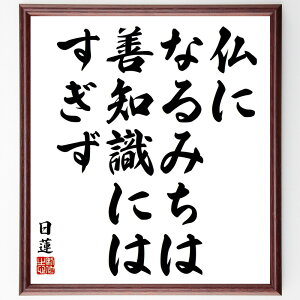 仏に
なるみちは
善知識には
すぎず
日蓮